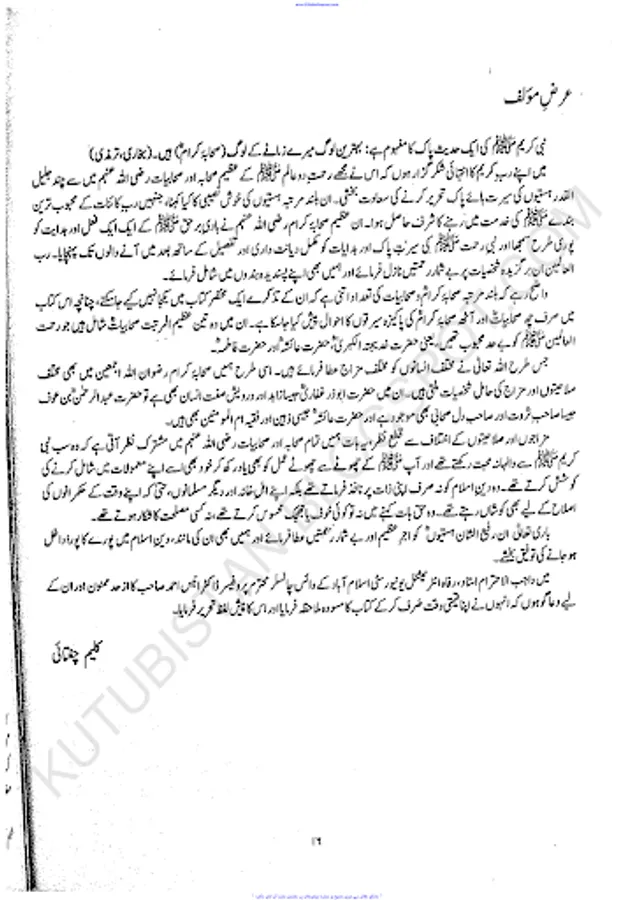 عرضِ مؤلف
نبی کریم ﷺ کی ایک حدیث پاک کا مفہوم ہے: بہترین لوگ میرے زمانے کے لوگ (صحابۂ کرامؓ) ہیں۔ (بخاری، ترمذی)
میں اپنے ربِ کریم کا انتہائی شکر گزار ہوں کہ اس نے مجھے رحمتِ دو عالم ﷺ کے عظیم صحابہ اور صحابیات رضی اللہ عنہم میں سے چند جلیل
القدر ہستیوں کی سیرت ہائے پاک تحریر کرنے کی سعادت بخشی۔ ان بلند مرتبہ ہستیوں کی خوش نصیبی کا کیا کہنا، جنہیں ربِ کائنات کے محبوب ترین
بندے ﷺ کی خدمت میں رہنے کا شرف حاصل ہوا۔ ان عظیم صحابہ کرام رضی اللہ عنہم نے ہادیِ برحق ﷺ کے ایک ایک فعل اور ہدایت کو
پوری طرح سمجھا اور نبی رحمت ﷺ کی سیرتِ پاک اور ہدایات کو مکمل دیانت داری اور تفصیل کے ساتھ بعد میں آنے والوں تک پہنچایا۔ رب
العالمین ان برگزیدہ شخصیات پر بے شمار رحمتیں نازل فرمائے اور ہمیں بھی اپنے پسندیدہ بندوں میں شامل فرمائے۔
واضح رہے کہ بلند مرتبہ صحابہ کرامؓ و صحابیات کی تعداد اتنی ہے کہ ان کے تذکرے ایک مختصر کتاب میں یکجا نہیں کیے جا سکتے، چنانچہ اس کتاب
میں صرف چھ صحابیاتؓ اور آٹھ صحابہ کرامؓ کی پاکیزہ سیرتوں کا احوال پیش کیا جا سکا ہے۔ ان میں وہ تین عظیم المرتبت صحابیاتؓ شامل ہیں جو رحمت
العالمین ﷺ کو بے حد محبوب تھیں، یعنی حضرت خدیجۃ الکبریٰؓ، حضرت عائشہؓ اور حضرت فاطمہؓ۔
جس طرح اللہ تعالیٰ نے مختلف انسانوں کو مختلف مزاج عطا فرمائے ہیں۔ اسی طرح ہمیں صحابہ کرام رضوان اللہ اجمعین میں بھی مختلف
صلاحیتوں اور مزاج کی حامل شخصیات ملتی ہیں۔ ان میں حضرت ابوذر غفاریؓ جیسا زاہد اور درویش صفت انسان بھی ہے تو حضرت عبدالرحمٰنؓ بن عوف
جیسا صاحبِ ثروت اور صاحبِ دل صحابی بھی موجود ہے اور حضرت عائشہؓ جیسی ذہین اور فقیہ ام المومنین بھی ہیں۔
مزاجوں اور صلاحیتوں کے اختلاف سے قطع نظر یہ بات ہمیں تمام صحابہ اور صحابیات رضی اللہ عنہم میں مشترک نظر آتی ہے کہ وہ سب نبی
کریم ﷺ سے والہانہ محبت رکھتے تھے اور آپ ﷺ کے چھوٹے سے چھوٹے عمل کو بھی یاد رکھ کر خود بھی اسے اپنے معمولات میں شامل کرنے کی
کوشش کرتے تھے۔ وہ دینِ اسلام کو نہ صرف اپنی ذات پر نافذ فرماتے تھے بلکہ اپنے اہل خانہ اور دیگر مسلمانوں، حتیٰ کہ اپنے وقت کے حکمرانوں کی
اصلاح کے لیے بھی کوشاں رہتے تھے۔ وہ حق بات کہنے میں نہ تو کوئی خوف یا جھجک محسوس کرتے تھے، نہ کسی مصلحت کا شکار ہوتے تھے۔
باری تعالیٰ ان رفیع الشان ہستیوںؓ کو اجرِ عظیم اور بے شمار نعمتیں عطا فرمائے اور ہمیں بھی ان کی مانند، دینِ اسلام میں پورے کا پورا داخل
ہو جانے کی توفیق بخشے۔
میں واجب الاحترام استاد، رفاہ انٹرنیشنل یونیورسٹی اسلام آباد کے وائس چانسلر محترم پروفیسر ڈاکٹر انیس احمد صاحب کا از حد ممنون اور ان کے
لیے دعا گو ہوں کہ انہوں نے اپنا قیمتی وقت صرف کر کے کتاب کا مسودہ ملاحظہ فرمایا اور اس کا پیش لفظ تحریر فرمایا۔
کلیم چغتائی
KUTUBISTAN.BLOGSPOT.COM
۱۲